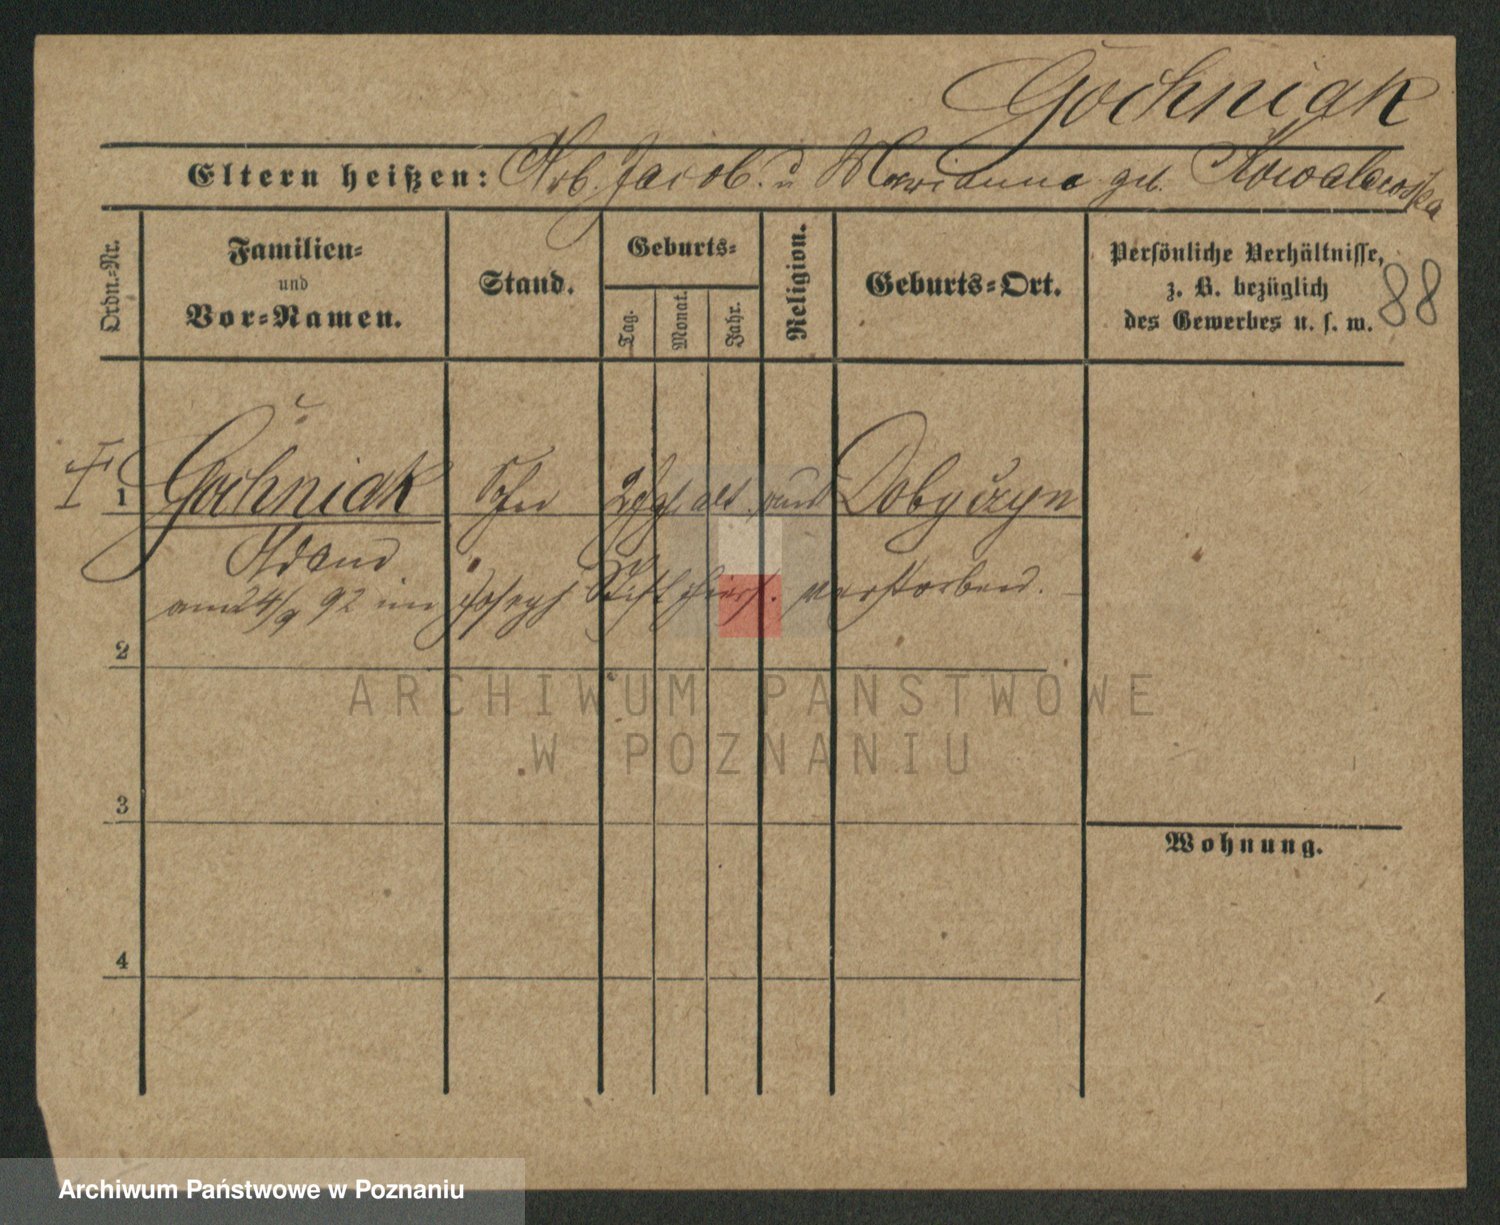 Gochniak
Eltern heißen: Arb. Jacob u Marianna geb. Kowalewska
Ordn.-Nr.
Familien-
und
Vor-Namen.
Stand.
Geburts-
Tag.
Monat.
Jahr.
Religion.
Geburts-Ort.
Persönliche Verhältnisse,
z. B. bezüglich
des Gewerbes u. s. w.
88
1 Gochniak Sohn alt aus Dobyczyn
am 24/9 92 im Joseph Stift hiers. verstorben.
2
ARCHIWUM PAŃSTWOWE
W POZNANIU
3
Wohnung.
4
Archiwum Państwowe w Poznaniu